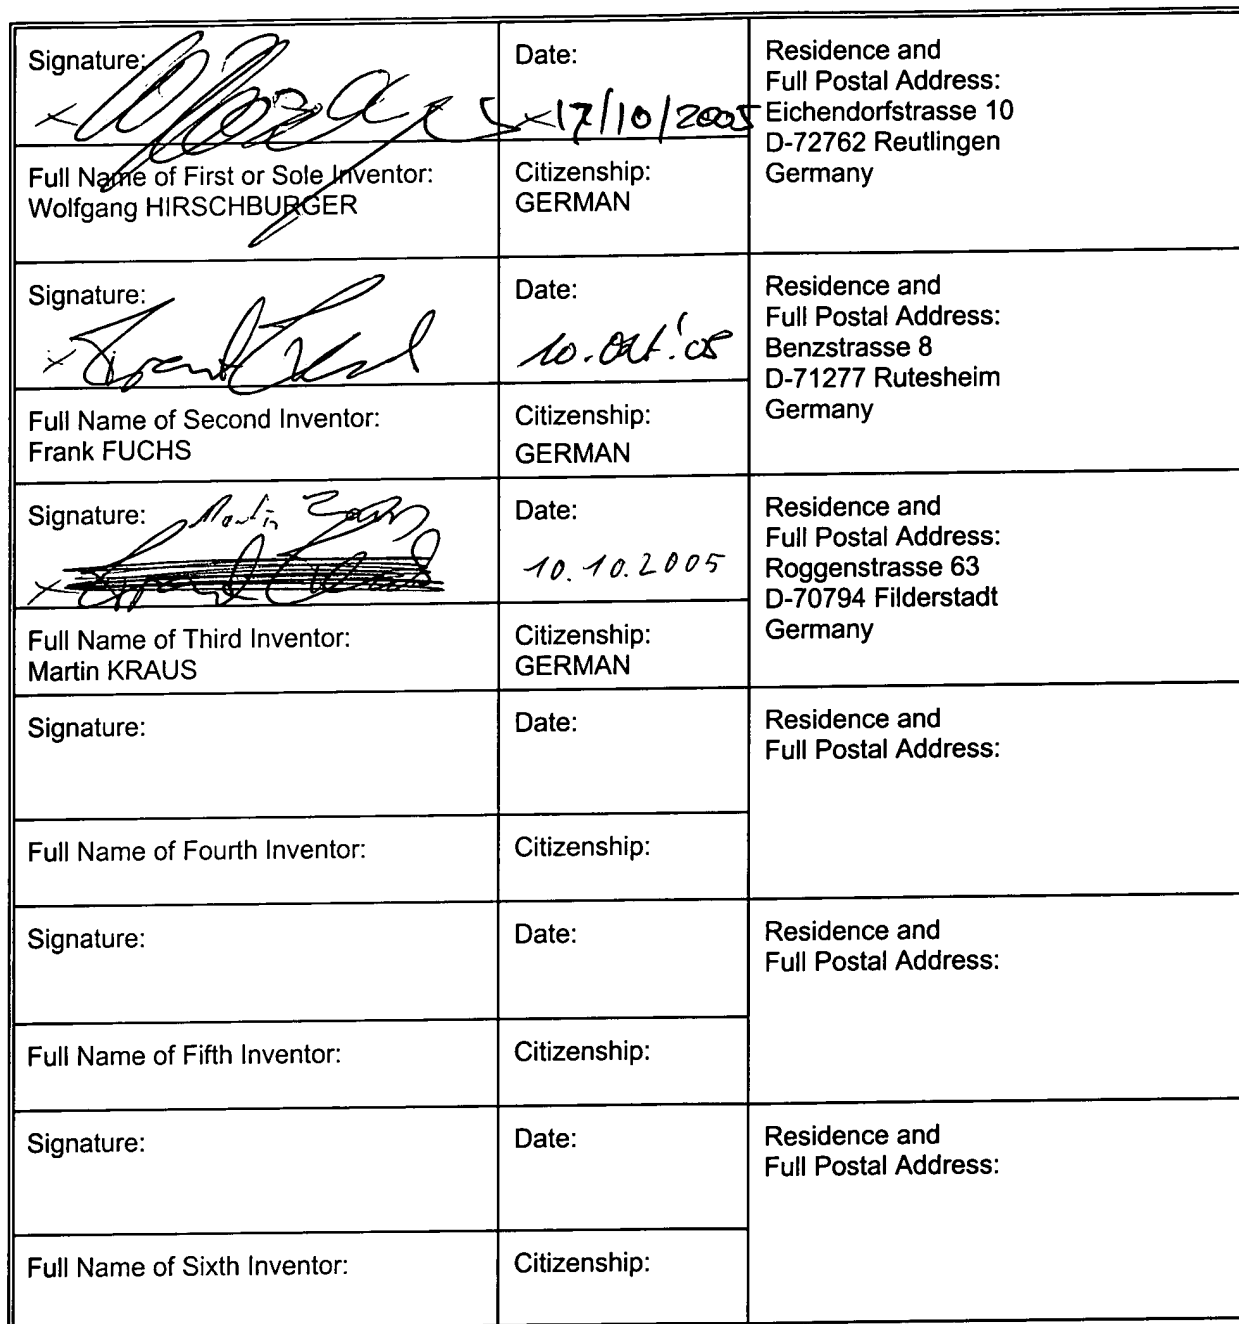 Signature:
Date:
17/10/2005
Residence and
Full Postal Address:
Eichendorfstrasse 10
D-72762 Reutlingen
Germany
Full Name of First or Sole Inventor:
Wolfgang HIRSCHBURGER
Citizenship:
GERMAN
Signature:
Date:
10. Okt.'05
Residence and
Full Postal Address:
Benzstrasse 8
D-71277 Rutesheim
Germany
Full Name of Second Inventor:
Frank FUCHS
Citizenship:
GERMAN
Signature:
Martin
Date:
10.10.2005
Residence and
Full Postal Address:
Roggenstrasse 63
D-70794 Filderstadt
Germany
Full Name of Third Inventor:
Martin KRAUS
Citizenship:
GERMAN
Signature:
Date:
Residence and
Full Postal Address:
Full Name of Fourth Inventor:
Citizenship:
Signature:
Date:
Residence and
Full Postal Address:
Full Name of Fifth Inventor:
Citizenship:
Signature:
Date:
Residence and
Full Postal Address:
Full Name of Sixth Inventor:
Citizenship: